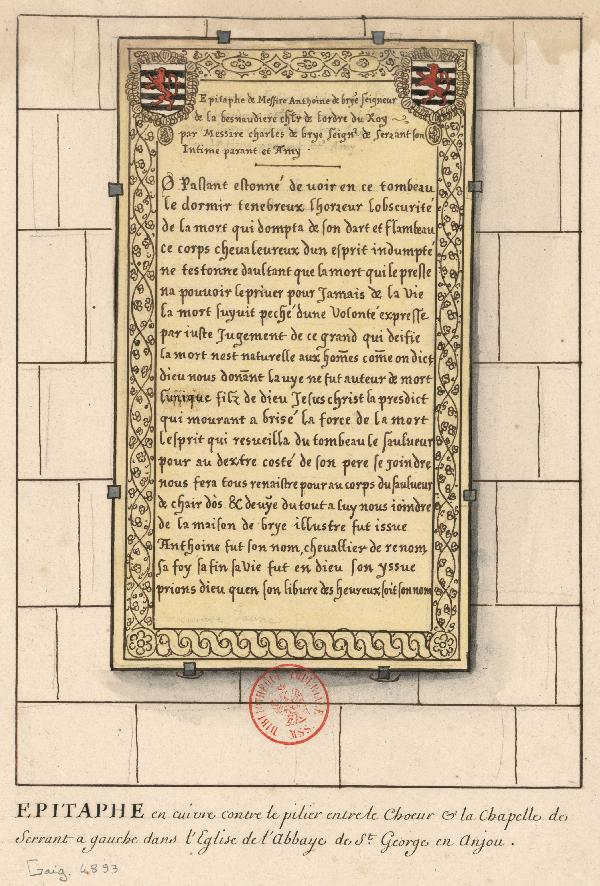 Epitaphe de Messire Anthoine de brye seigneur
de la besnaudiere chlr de lordre du Roy
par Messire charles de brye seignr de serrant son
Intime parant et Amy
O Passant estonné de voir en ce tombeau
le dormir tenebreux lhorreur lobscurité
de la mort qui dompta de son dart et flambeau
ce corps chevaleureux dun esprit indumpté
ne testonne daultant que la mort qui le presse
na pouvoir le priver pour Jamais de la vie
la mort suyuit peché dune volonté expresse
par iuste Jugement de ce grand qui deifie
la mort nest naturelle aux hom̃es com̃e on dict
dieu nous donãnt la vye ne fut auteur de mort
lunique filz de dieu Jesus christ la presdict
qui mourant a brisé la force de la mort
lesprit qui resueilla du tombeau le saulueur
pour au dextre costé de son pere se joindre
nous fera tous renaistre pour au corps du saulueur
de chair dòs & de vye du tout a luy nous ioindre
de la maison de brye illustre fut issue
Anthoine fut son nom, chevallier de renom
sa foy sa fin sa vie fut en dieu son yssue
prions dieu quen son libure des heureux soit son nom
BIBLIOTHEQUE IMPERIALE MSS
EPITAPHE en cuivre contre le pilier entre le Choeur & la Chapelle de
Serrant a gauche dans l'Eglise de l'Abbaye de St. George en Anjou.
Gaig. 4893